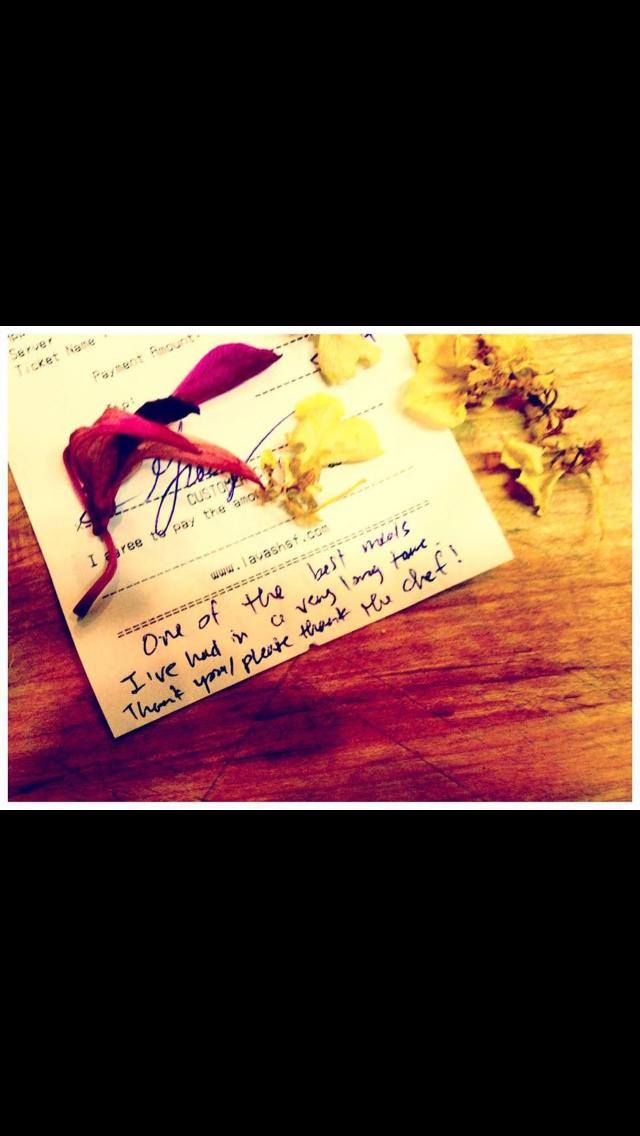 Server
Ticket Name
Payment Amount:
CUSTOM
I agree to pay the amo
www.lavashsf.com
One of the best meals
I've had in a very long time.
Thank you/please thank the chef!